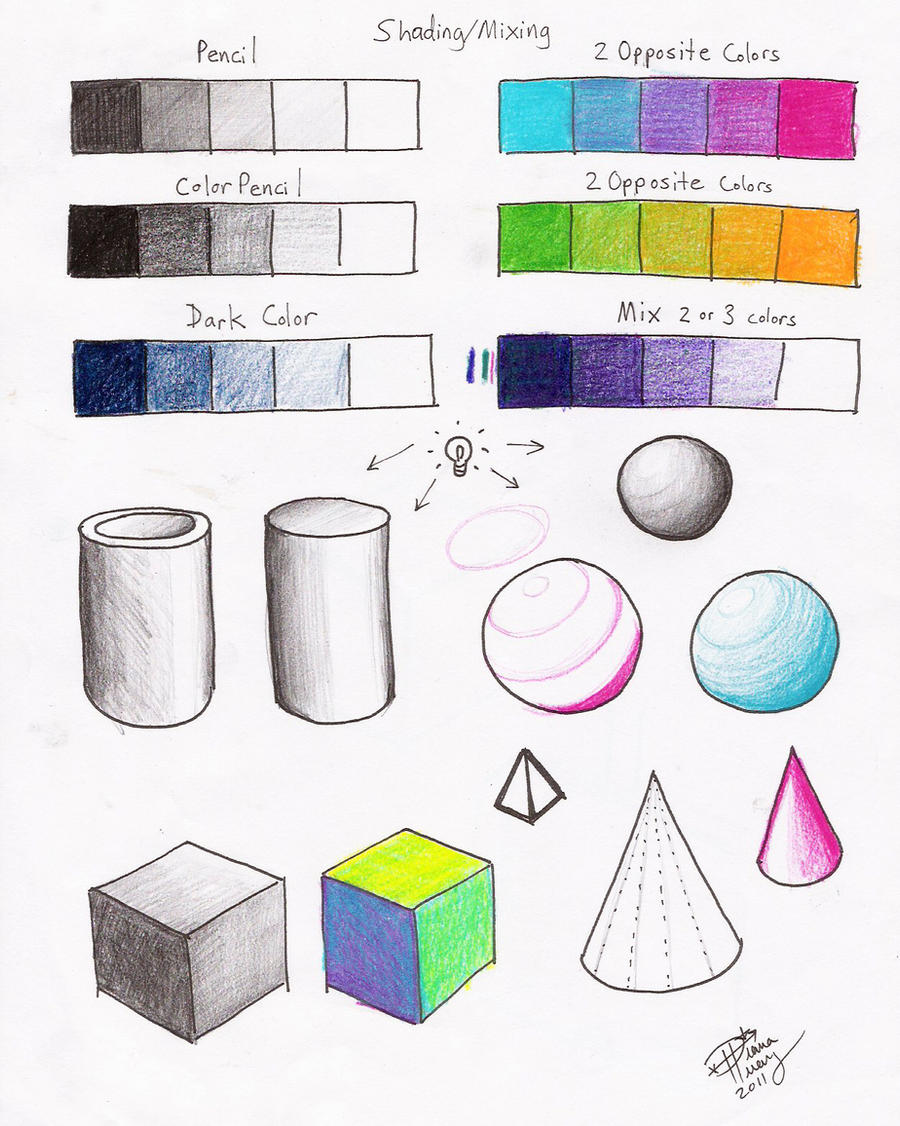 Shading/Mixing
Pencil
2 Opposite Colors
Color Pencil
2 Opposite Colors
Dark Color
Mix 2 or 3 colors
Diana
2011